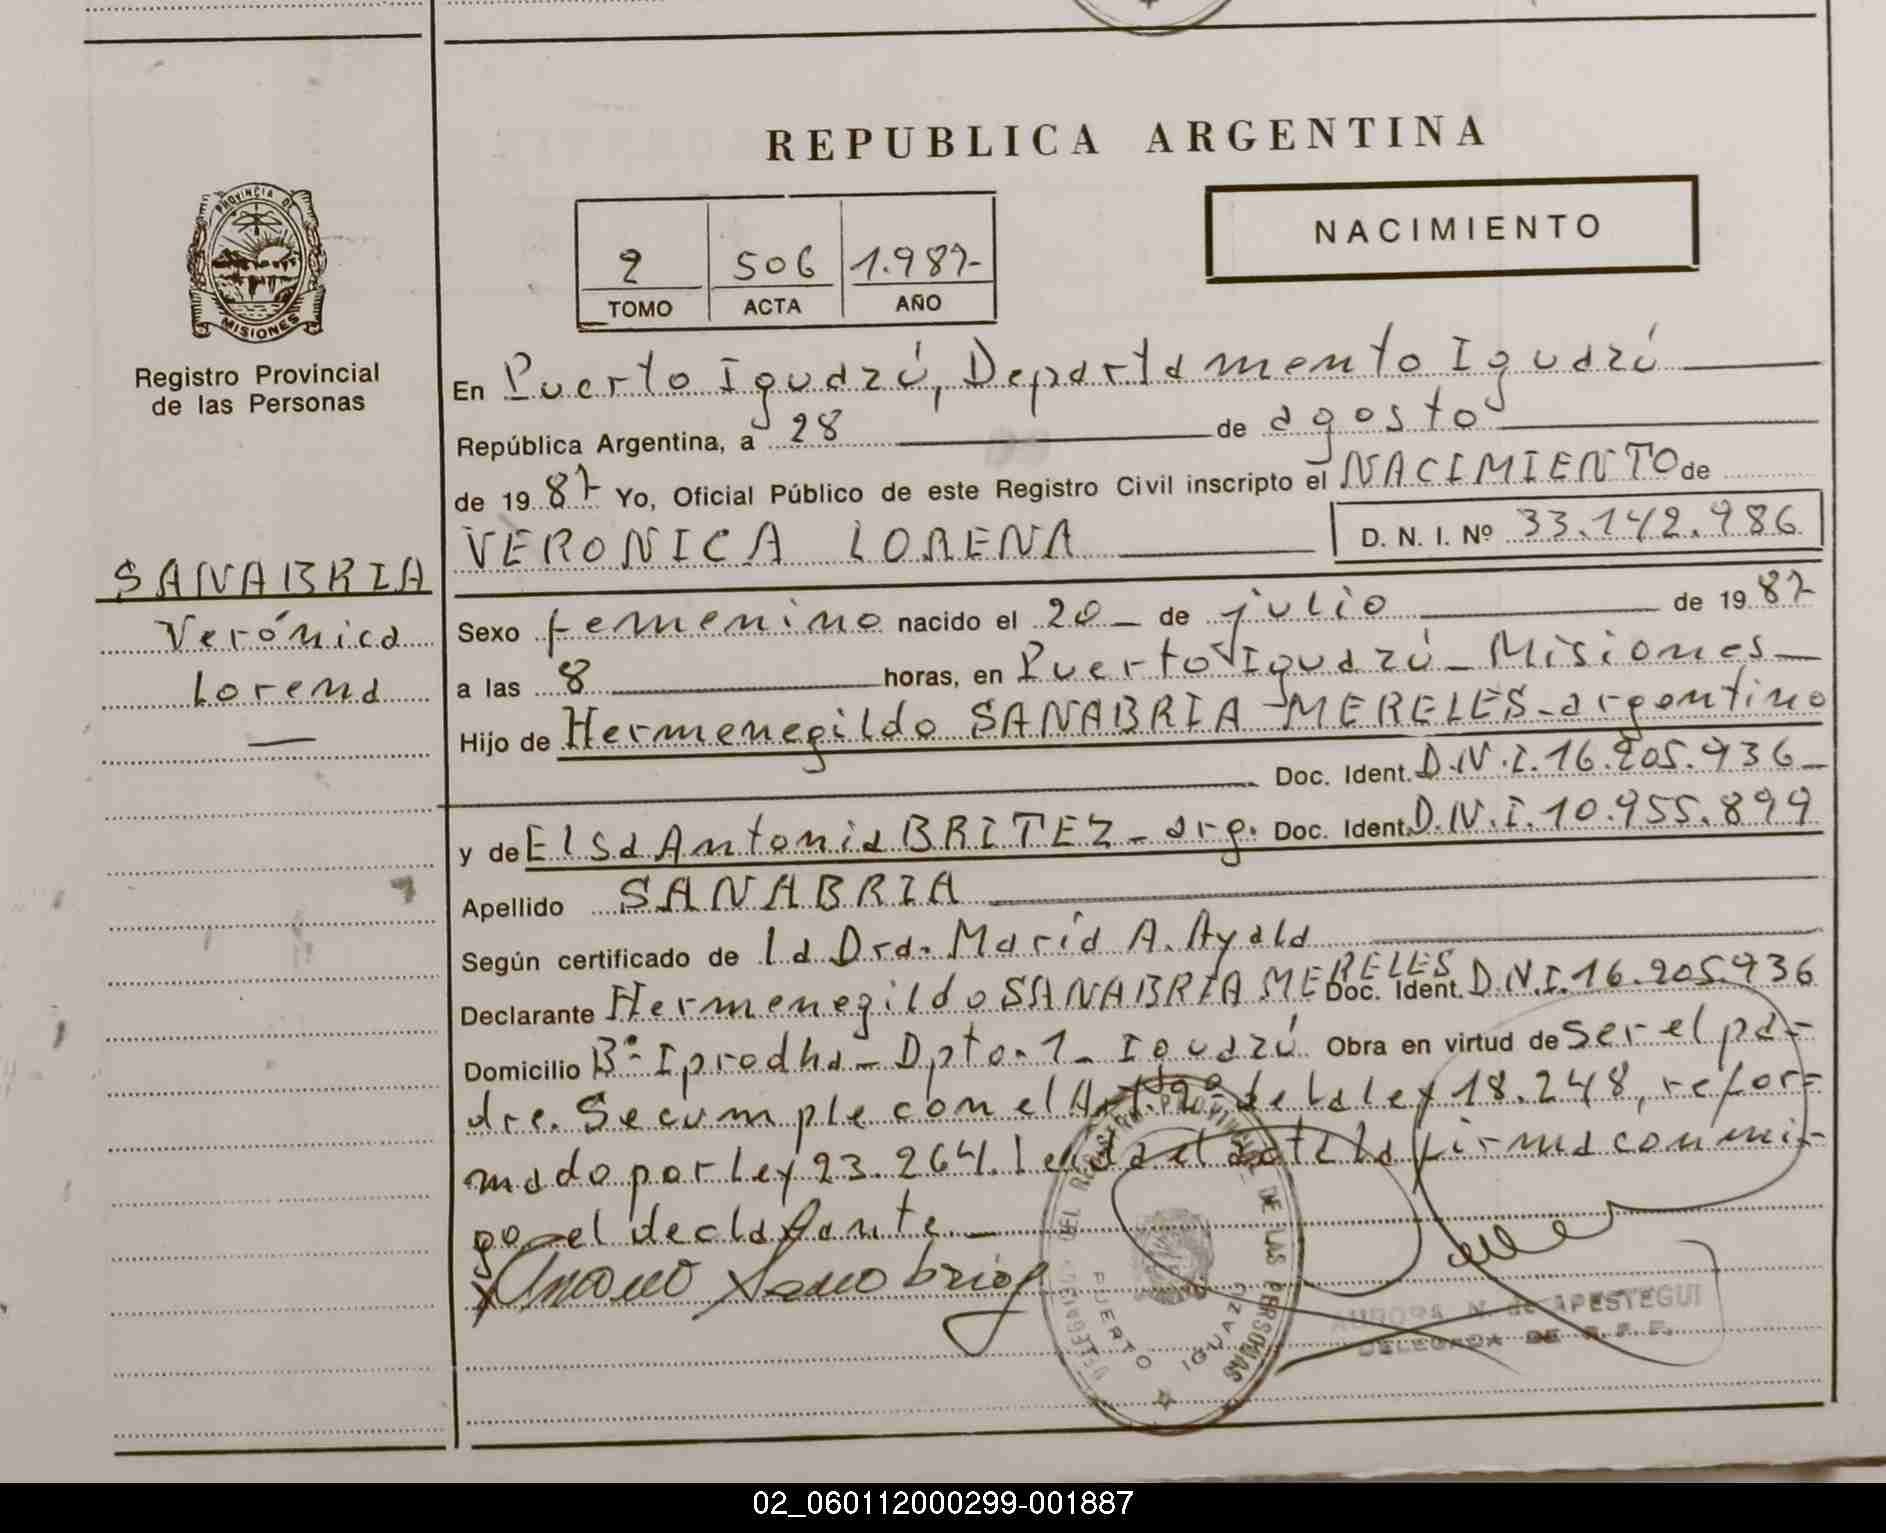 REPUBLICA ARGENTINA
PROVINCIA DE
MISIONES
Registro Provincial
de las Personas
2 506 1.987-
TOMO ACTA AÑO
NACIMIENTO
En Puerto Iguazú, Departamento Iguazú
República Argentina, a 28 de agosto
de 19 87 Yo, Oficial Público de este Registro Civil inscripto el NACIMIENTO de
VERONICA LORENA D. N. I. Nº 33.142.986
SANABRIA
Verónica
Lorena
Sexo femenino nacido el 20 de julio de 19 87
a las 8 horas, en Puerto Iguazú - Misiones -
Hijo de Hermenegildo SANABRIA MERELES - argentino
Doc. Ident. D.N.I. 16.205.936 -
y de Elsa Antonia BRITEZ - arg. Doc. Ident. D.N.I. 10.955.899
Apellido SANABRIA
Según certificado de la Dra. María A. Ayala
Declarante Hermenegildo SANABRIA MERELES Doc. Ident. D.N.I. 16.205.936
Domicilio Bº Iprodha - Dpto. 1 - Iguazú Obra en virtud de ser el pa-
dre. Se cumple con el Art. 2º de la ley 18.248, refor-
mado por ley 23.264. leída el acta la firma conmi-
go el declarante -
DEL REGISTRO PROVINCIAL DE LAS PERSONAS
PUERTO IGUAZU
AURORA N. de APESTEGUI
DELEGADA DE R.P.P.
02_060112000299-001887